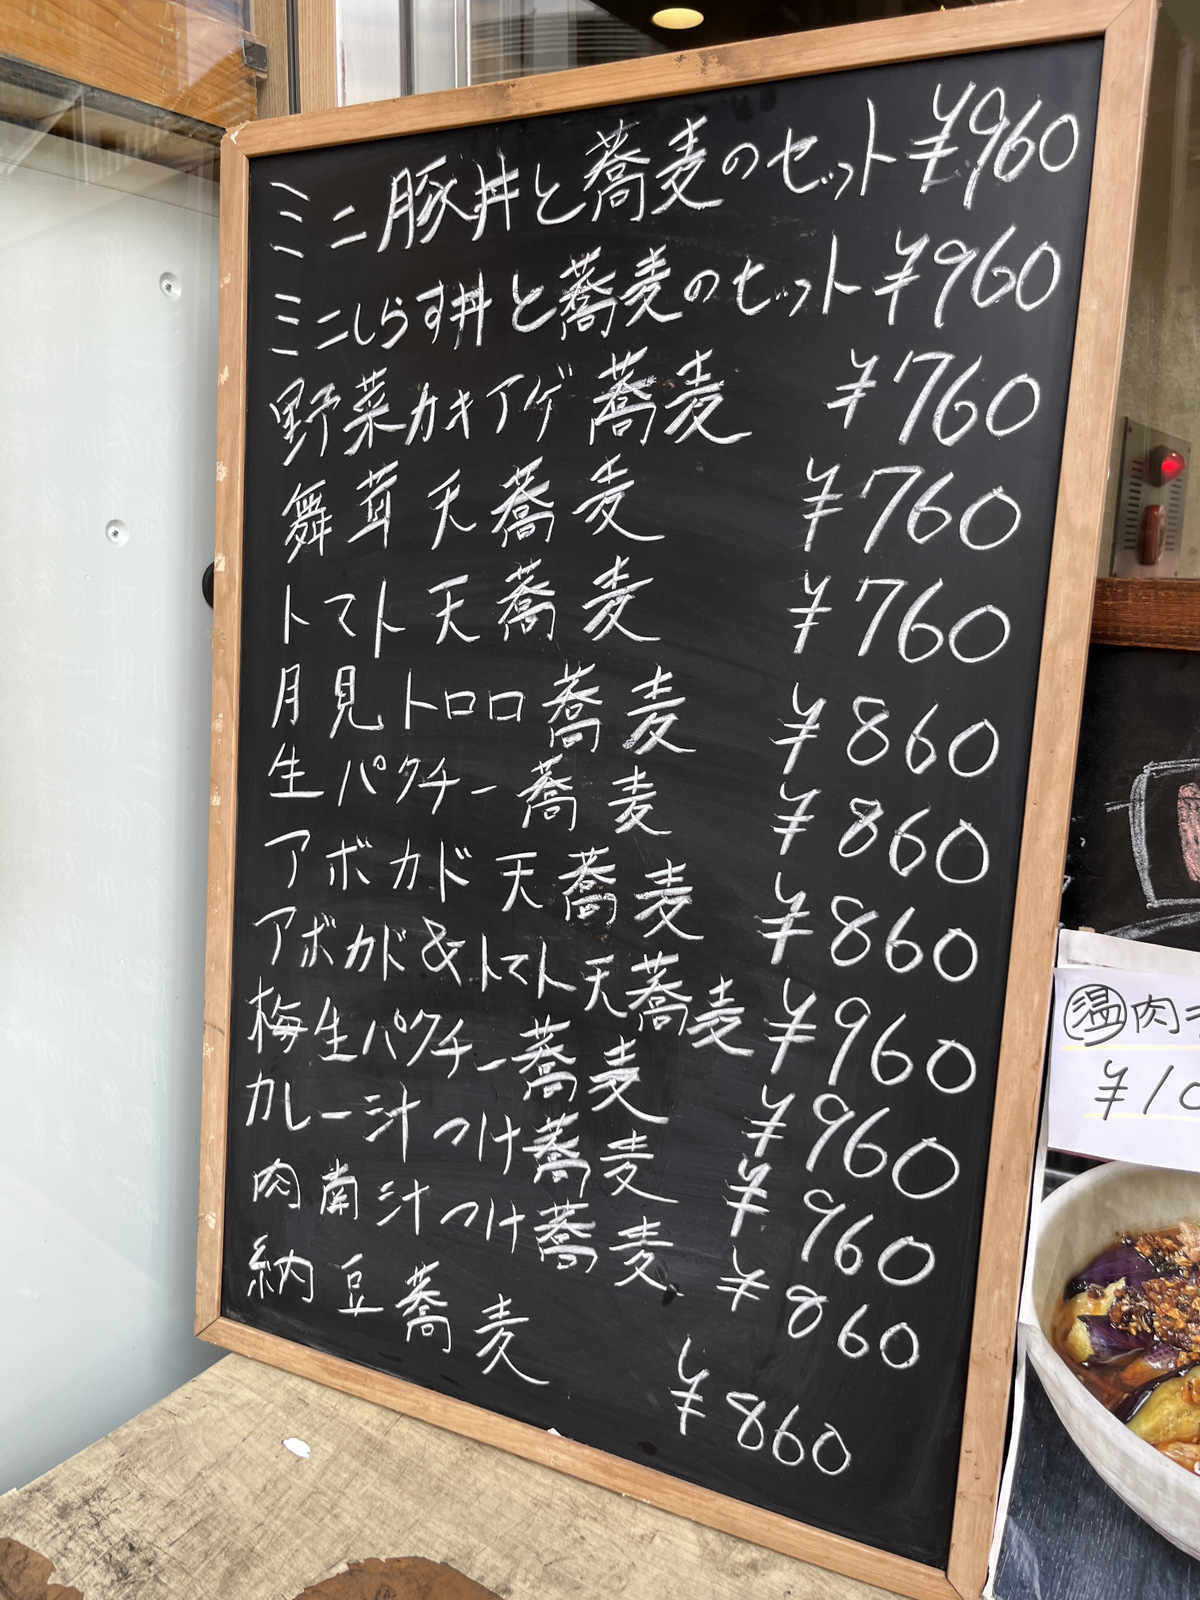 ミニ豚丼と蕎麦のセット ¥960
ミニしらす丼と蕎麦のセット ¥960
野菜カキアゲ蕎麦 ¥760
舞茸天蕎麦 ¥760
トマト天蕎麦 ¥760
月見トロロ蕎麦 ¥860
生パクチー蕎麦 ¥860
アボカド天蕎麦 ¥860
アボカド&トマト天蕎麦 ¥960
梅生パクチー蕎麦 ¥960
カレー汁つけ蕎麦 ¥960
肉南汁つけ蕎麦 ¥860
納豆蕎麦 ¥860
温肉
¥10